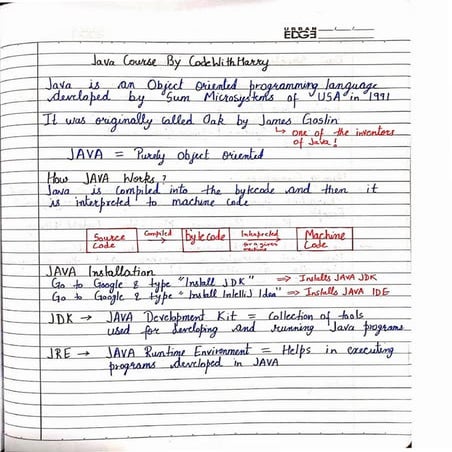 URBAN
EDGE
Java Course By CodeWithHarry
Java is an Object oriented programming language
developed by Sun Microsystems of USA in 1991
It was originally called Oak by James Goslin
↳ one of the inventors
of Java!
JAVA = Purely object oriented
How JAVA Works?
Java is compiled into the bytecode and then it
is interpreted to machine code
Source Code → Compiled → byte code → Interpreted for a given machine → Machine Code
JAVA Installation
Go to Google & type "Install JDK" ⇒ Installs JAVA JDK
Go to Google & type "Install Intellij Idea" ⇒ Installs JAVA IDE
JDK → JAVA Development Kit = Collection of tools
used for developing and running Java programs
JRE → JAVA Runtime Environment = Helps in executing
programs developed in JAVA